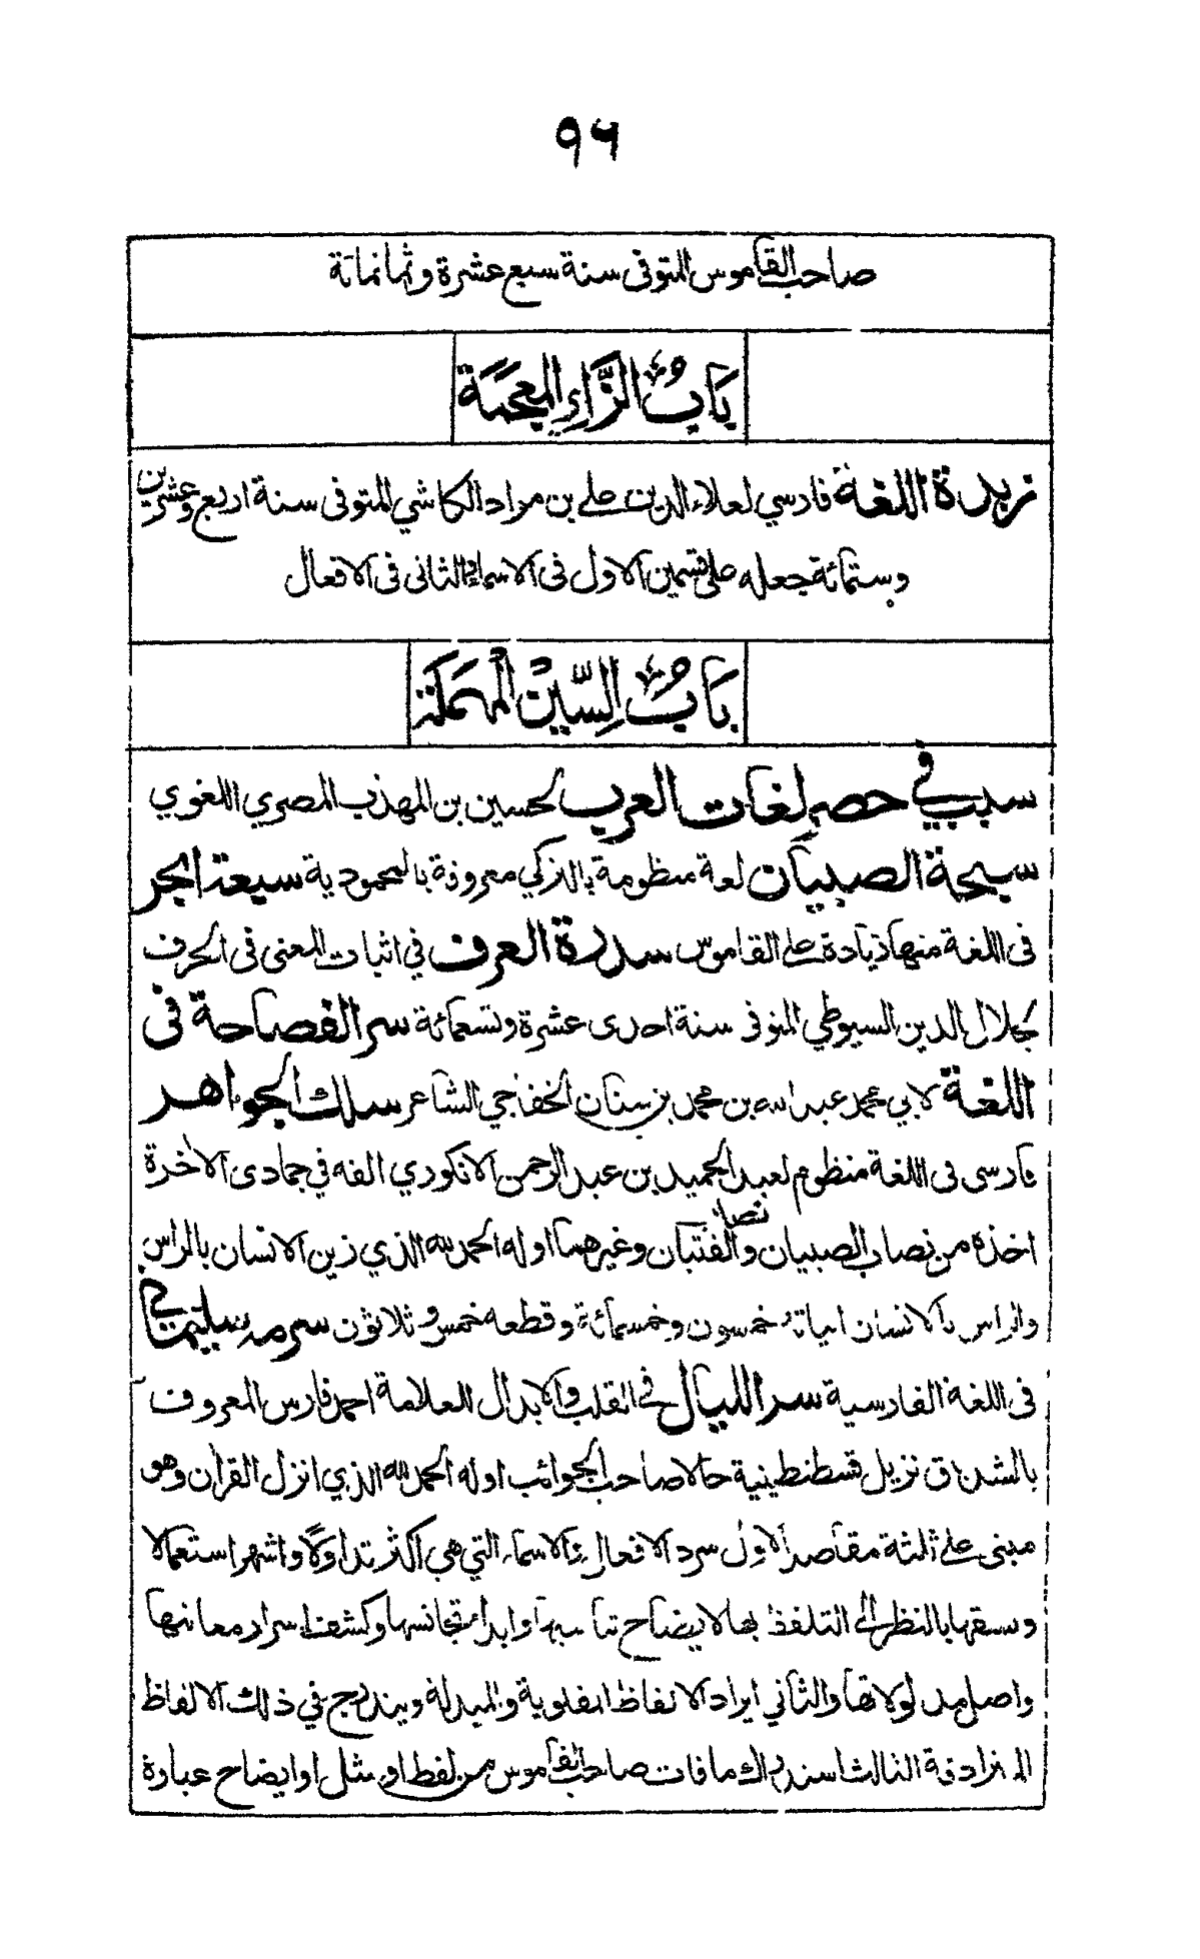 ٩٦
صاحب القاموس المتوفى سنة سبع عشرة وثمانمائة
بَابُ الزَّاءِ المعجَمَة
زبدة اللغة فارسي لعلاء الدين علي بن مراد الكاشي المتوفى سنة اربع وعشرين
وستمائة جعله على قسمين الاول فى الاسماء الثانى فى الافعال
بَابُ السِّيْن الْمهمَلَة
سبب في حصر لغات العرب لحسين بن المهذب المصري اللغوي
سبحة الصبيان لغة منظومة بالتركي معروفة بالمحمودية سبعة ابحر
فى اللغة منها زيادة على القاموس سدرة العرف في اثبات المعنى فى الحرف
لجلال الدين السيوطي المتوفى سنة احدى عشرة وتسعمائة سر الفصاحة فى
اللغة لابي محمد عبد الله بن محمد بن سنان الخفاجي الشاعر سلك الجواهر
فارسى فى اللغة منظوم لعبد الحميد بن عبد الرحمن الانكوري الفه في جمادى الاخرة
اخذه من نصاب الصبيان ونصاب الفتيان وغيرهما اوله الحمد لله الذي زين الانسان بالراس
والراس بالانسان ابياته خمسون وخمسمائة وقطعه خمس وثلاثون سرمه سليماني
فى اللغة الفارسية سر الليال في القلب والابدال للعلامة احمد فارس المعروف
بالشدياق نزيل قسطنطينية حالا صاحب الجوائب اوله الحمد لله الذي انزل القران وهو
مبنى على ثلثة مقاصد الاول سرد الافعال والاسماء التي هي اكثر تداولاً واشهر استعمالا
وسقها بالنظر الى التلفظ بها لايضاح تناسبها وابداء تجانسها وكشف اسرار معانيها
واصل مدلولاتها والثاني ايراد الالفاظ المقلوبة والمبدلة ويندرج في ذلك الالفاظ
المترادفة الثالث استدراك ما فات صاحب القاموس من لفظ او مثل او ايضاح عبارة